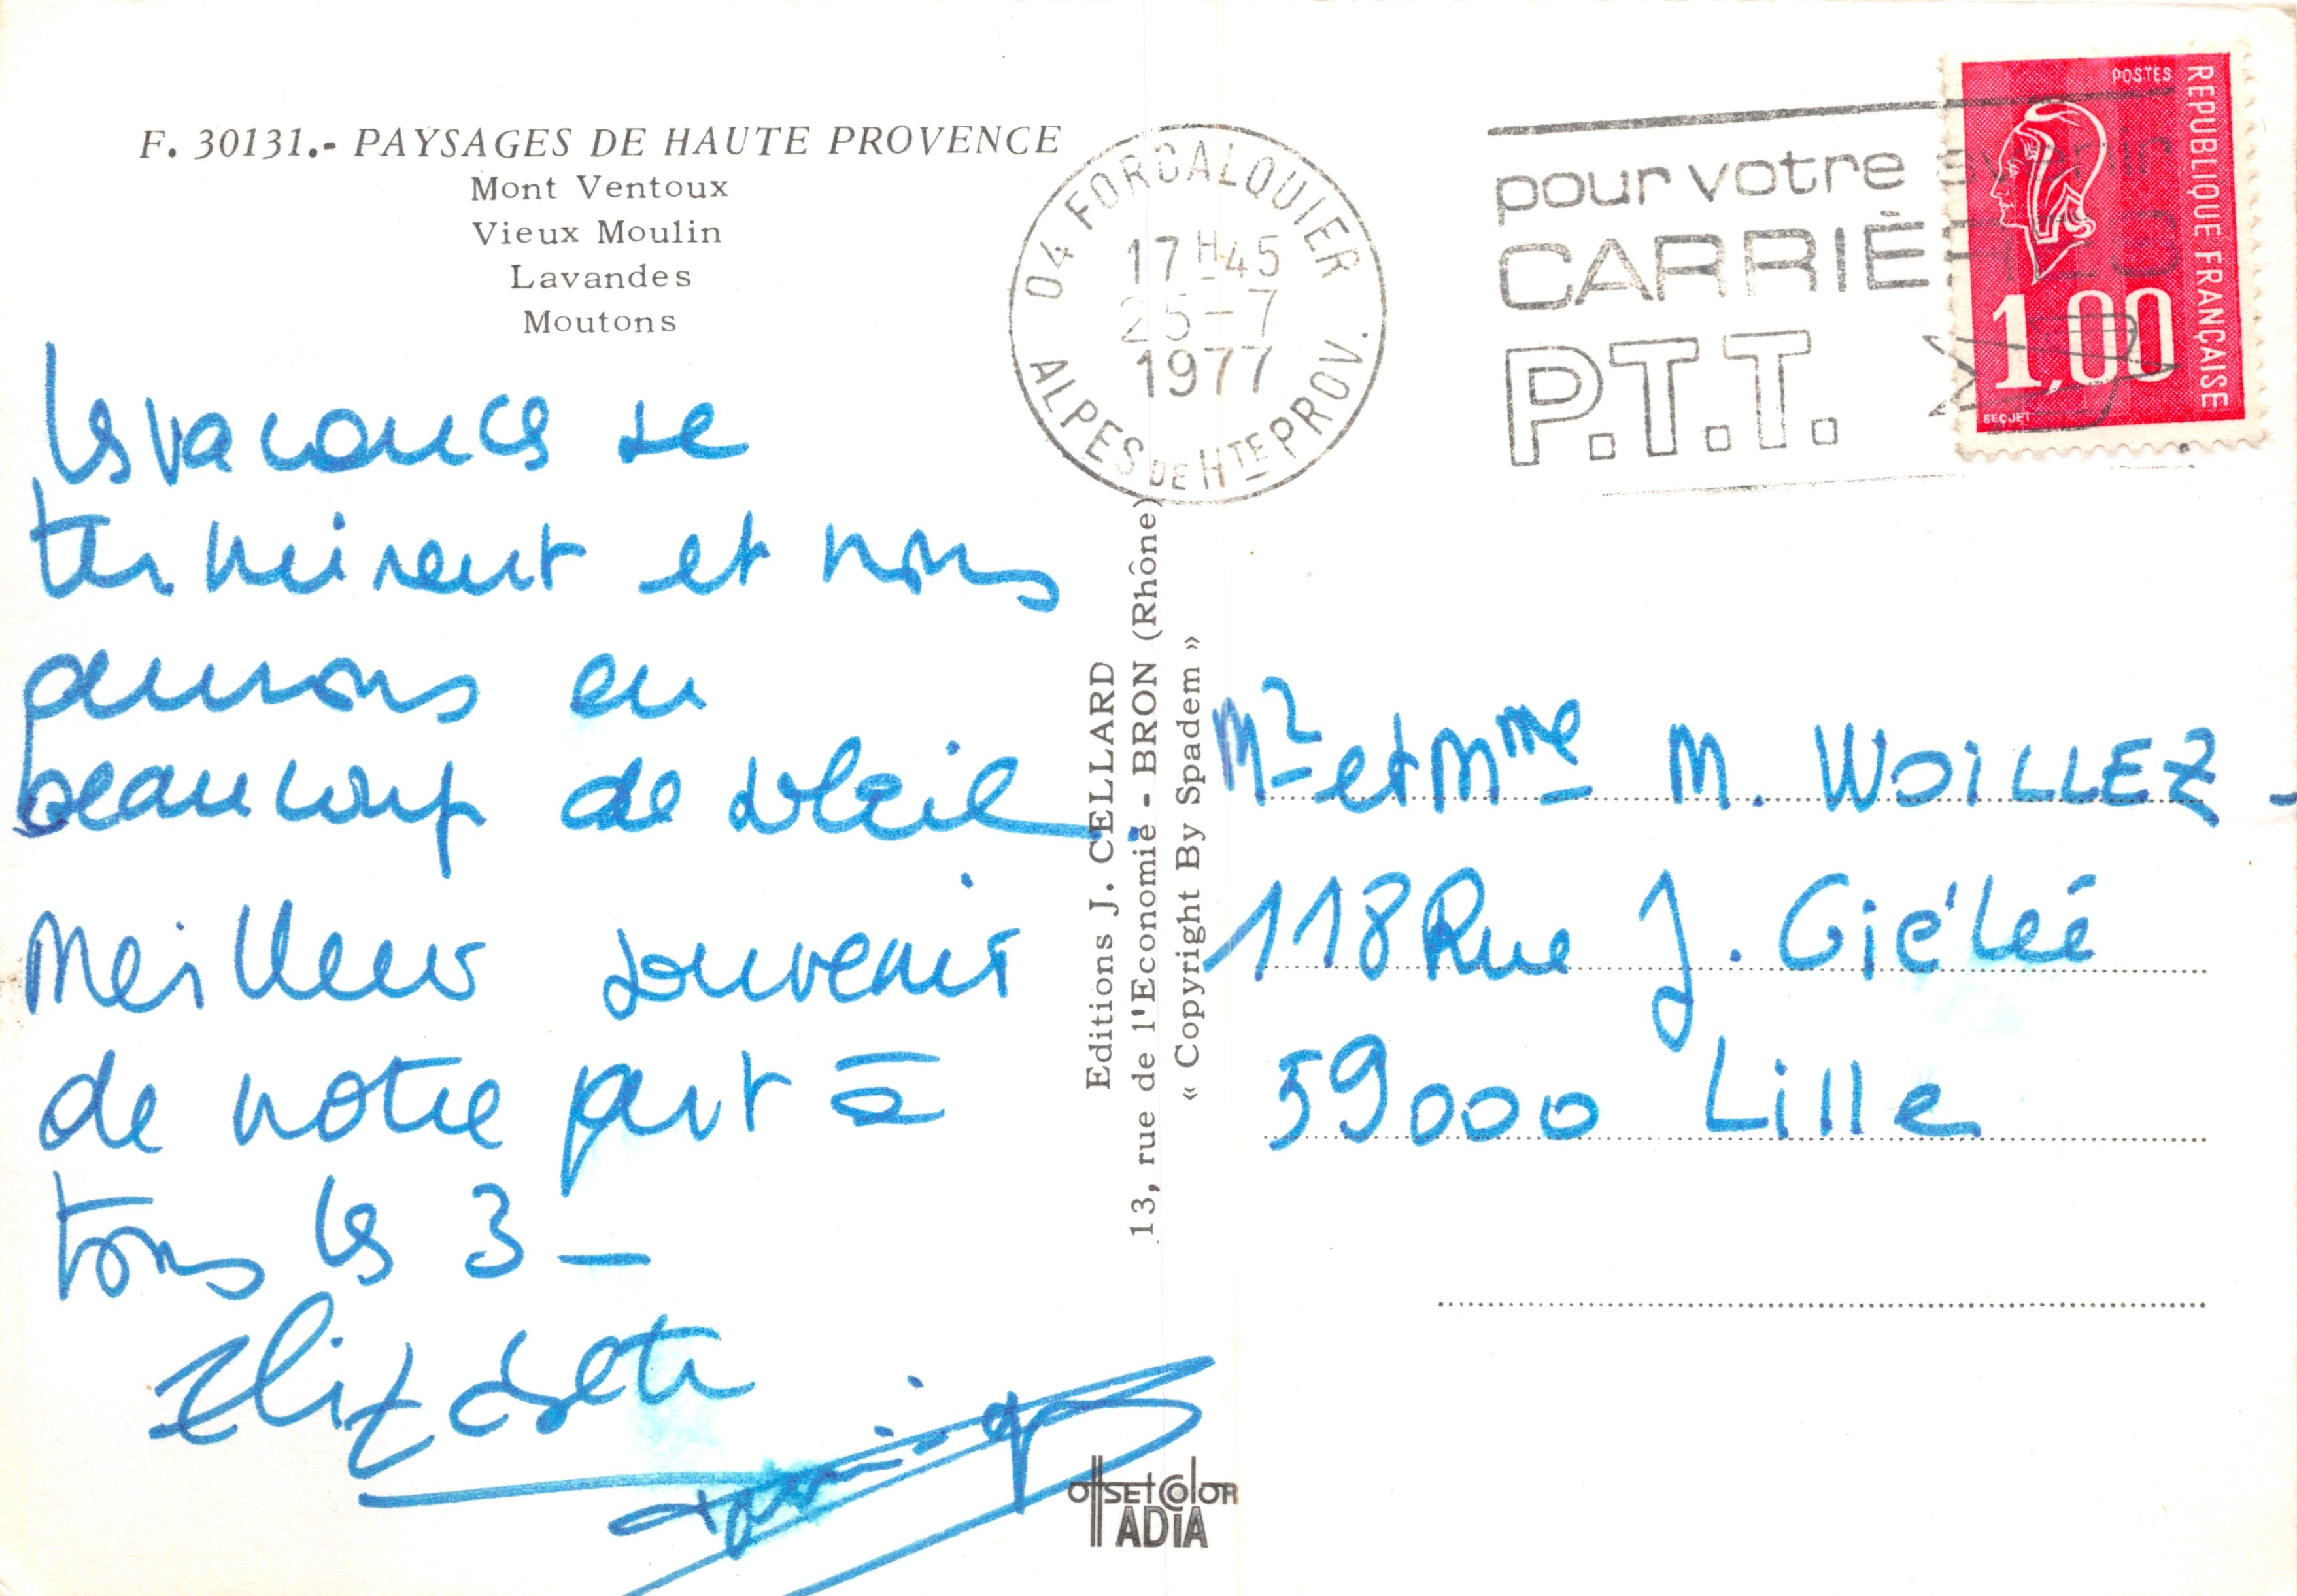 F. 30131.- PAYSAGES DE HAUTE PROVENCE
Mont Ventoux
Vieux Moulin
Lavandes
Moutons
les vacances se
terminent et nous
aurons eu
beaucoup de soleil.
Meilleur souvenir
de notre part à
tous les 3 —
Elizabeth
04 FORCALQUIER
17H45
25-7
1977
ALPES DE HTE PROV.
pour votre avenir
CARRIÈRES
P.T.T.
POSTES
REPUBLIQUE FRANÇAISE
1,00
BEQUET
Editions J. CELLARD
13, rue de l'Economie - BRON (Rhône)
« Copyright By Spadem »
Mr et Mme M. WOiLLEZ -
118 Rue J. Giélée
59000 Lille
OffSET COlOR
ADIA